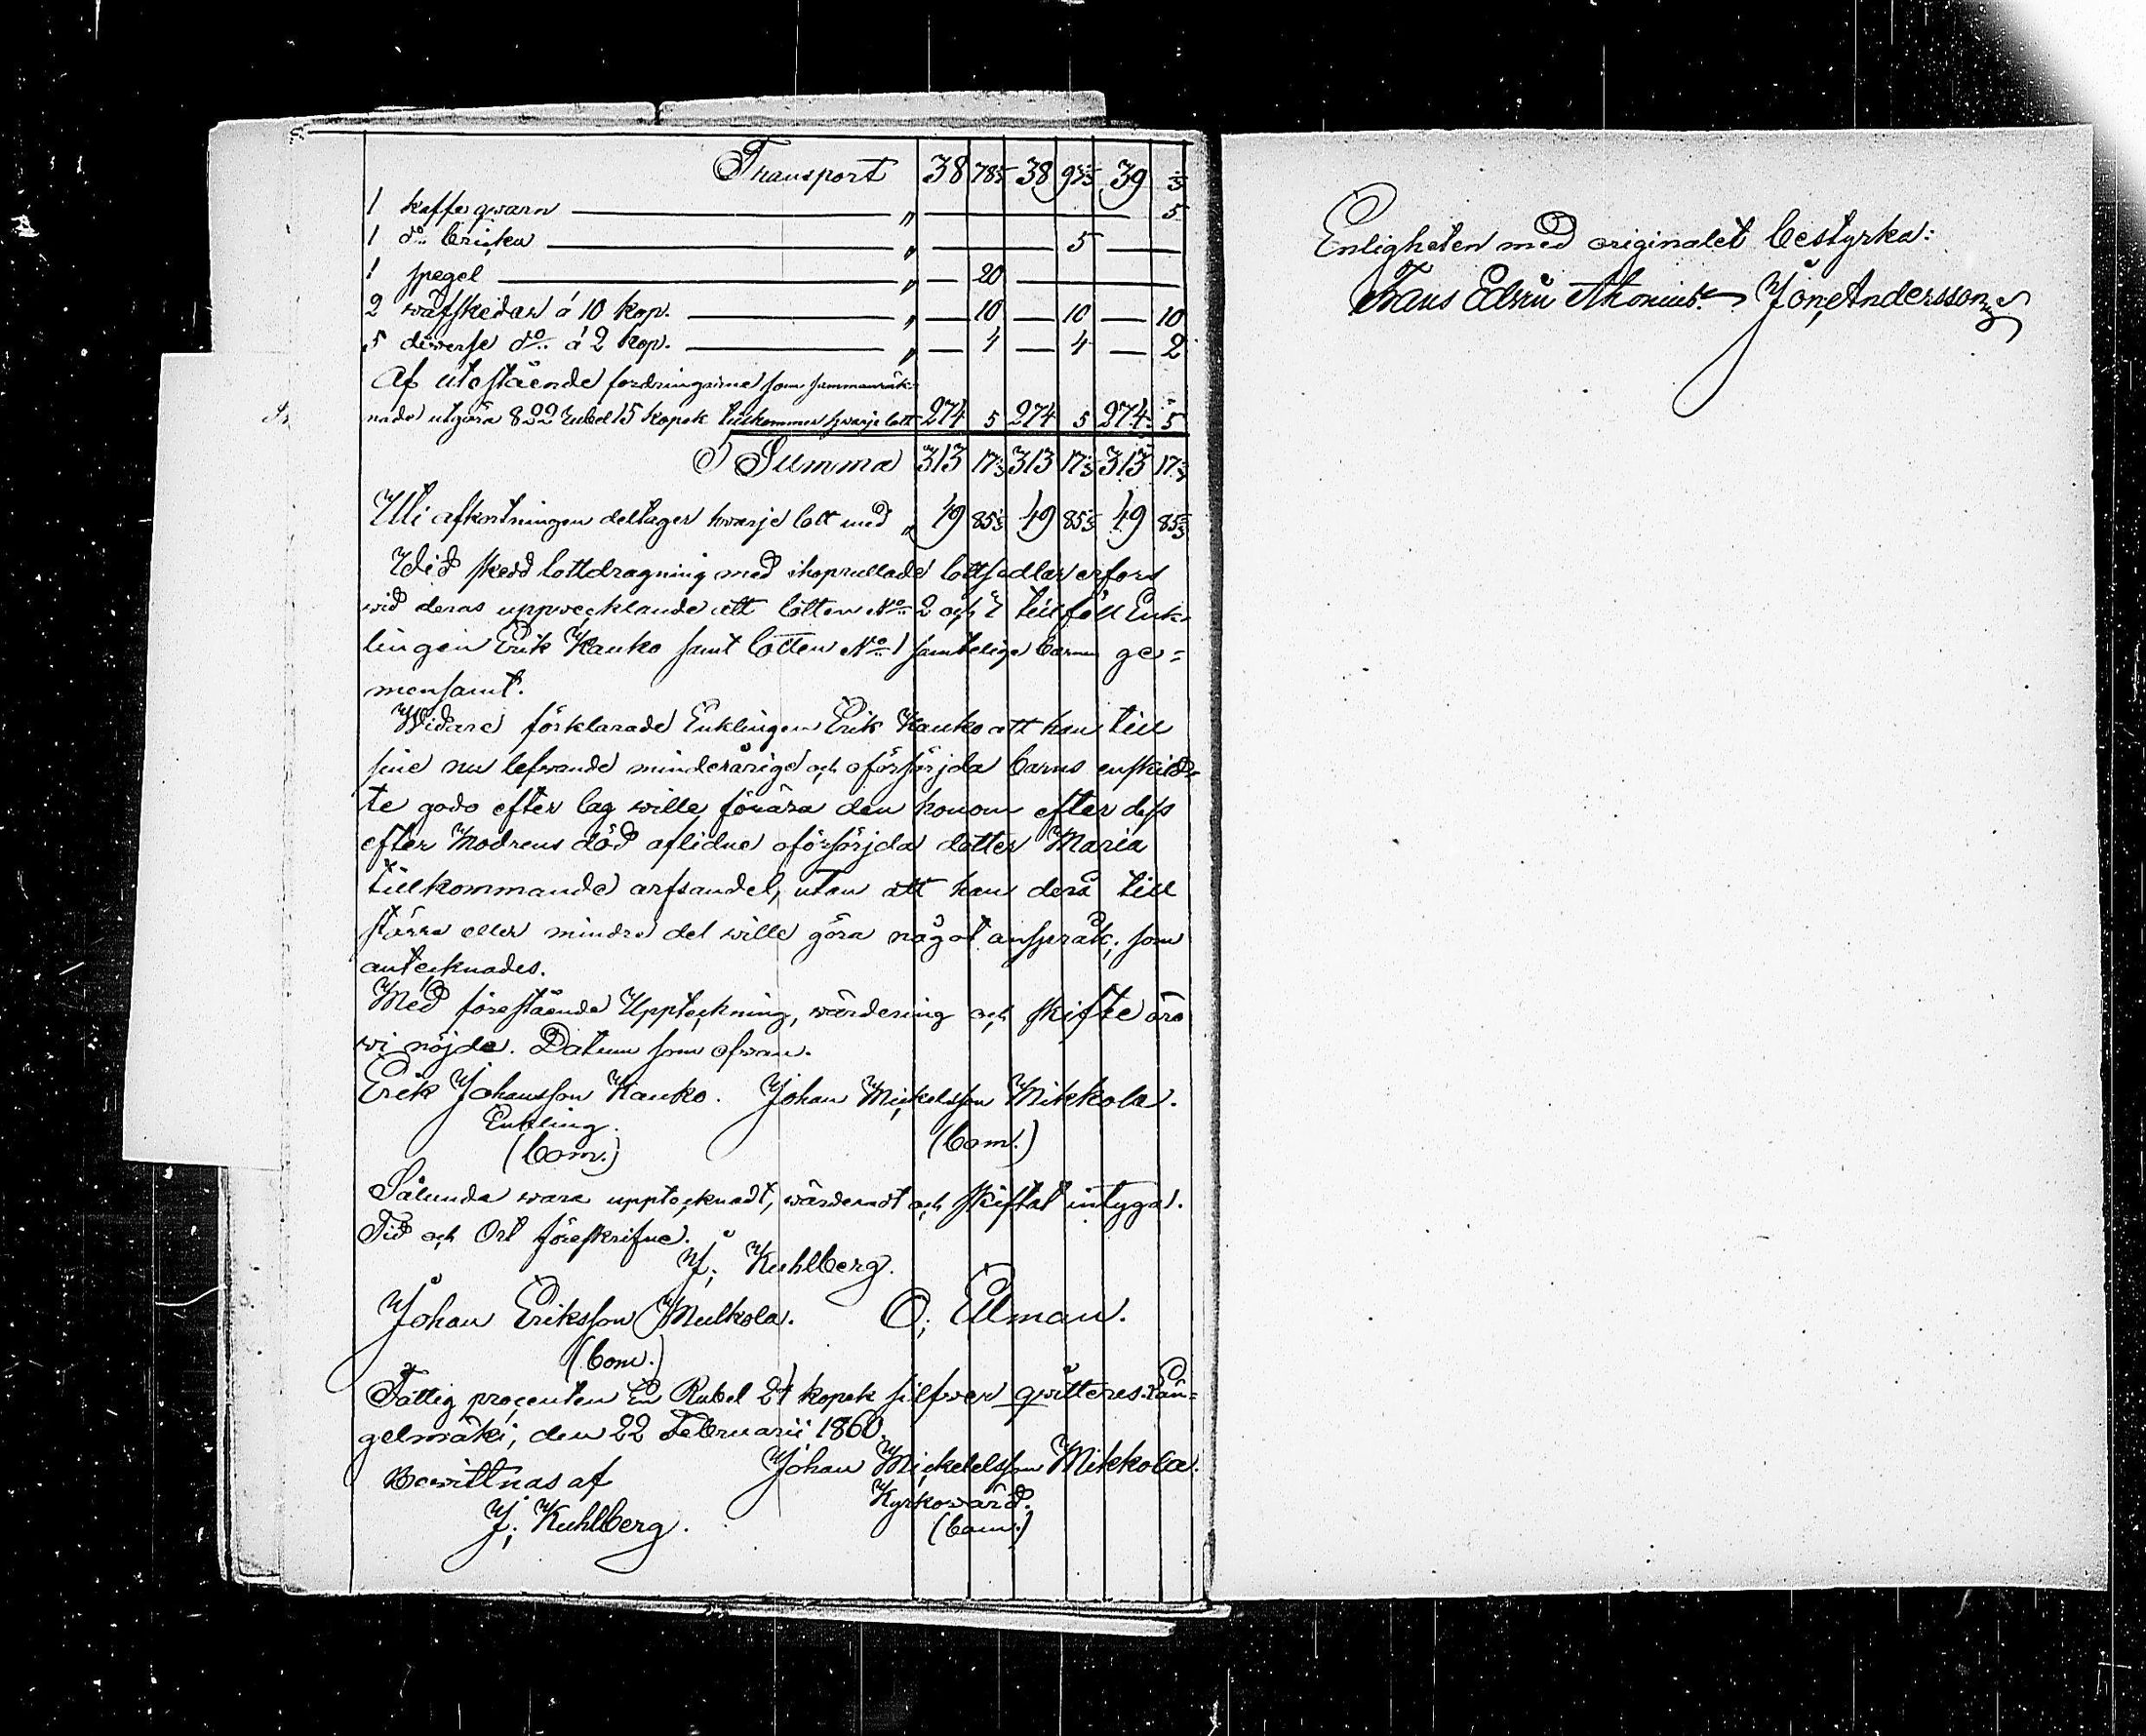 Transport 38 78⅔ 38 93⅔ 39 ⅔
1 kaffeqvarn — " — 5
1 do bricka — " — 5 —
1 spegel — " — 20 —
2 wäfskedar á 10 kop. — " — 10 — 10 — 10
5 diverse do á 2 kop. — " — 4 — 4 — 2
Af utestående fordringarne som sammanräk-
nade utgöra 822 Rubel 15 kopek tillkommer hwarje lott 274 5 274 5 274 5
Summa 313 17⅔ 313 17⅔ 313 17⅔
Uti afkortningen deltager hwarje lott med " 49 85⅔ 49 85⅔ 49 85⅔
Wid skedd lottdragning med ihoprullade lottsedlar erfors
wid deras uppwecklande att lotten No 2 och 3 tillföll Enk-
lingen Erik Kauko samt lotten No 1 samtelige barnen ge=
mensamt.
Widare förklarade Enklingen Erik Kauko att han till
sine nu lefwande minderårige och oförsörjda barns enskild-
te godo efter lag wille förära den honom efter dess
efter Modrens död aflidne oförsörjda dotter Maria
tillkommande arfsandel, utan att han derå till
större eller mindre del wille göra något anspråk; som
antecknades.
Med förestående Uppteckning, wärdering och skifte äro
wi nöjda. Datum som ofwan.
Erik Johansson Kauko. Johan Mickelsson Mikkola.
Enkling.
(bom.) (bom.)
Sålunda wara upptecknadt, wärderadt och skiftat intyga.
Tid och Ort föreskrifne.
J. Kuhlberg.
Johan Eriksson Mulkola. O. Ellman.
(bom.)
Fattig procenten En Rubel 24 kopek silfwer qwitteres. Län-
gelmäki, den 22 Februarii 1860.
Johan Mickelsson Mikkola.
Bewittnas af Kyrkowärd.
J. Kuhlberg. (bom.)
Enligheten med originalet bestyrka:
Frans Edvin Jon Andersson